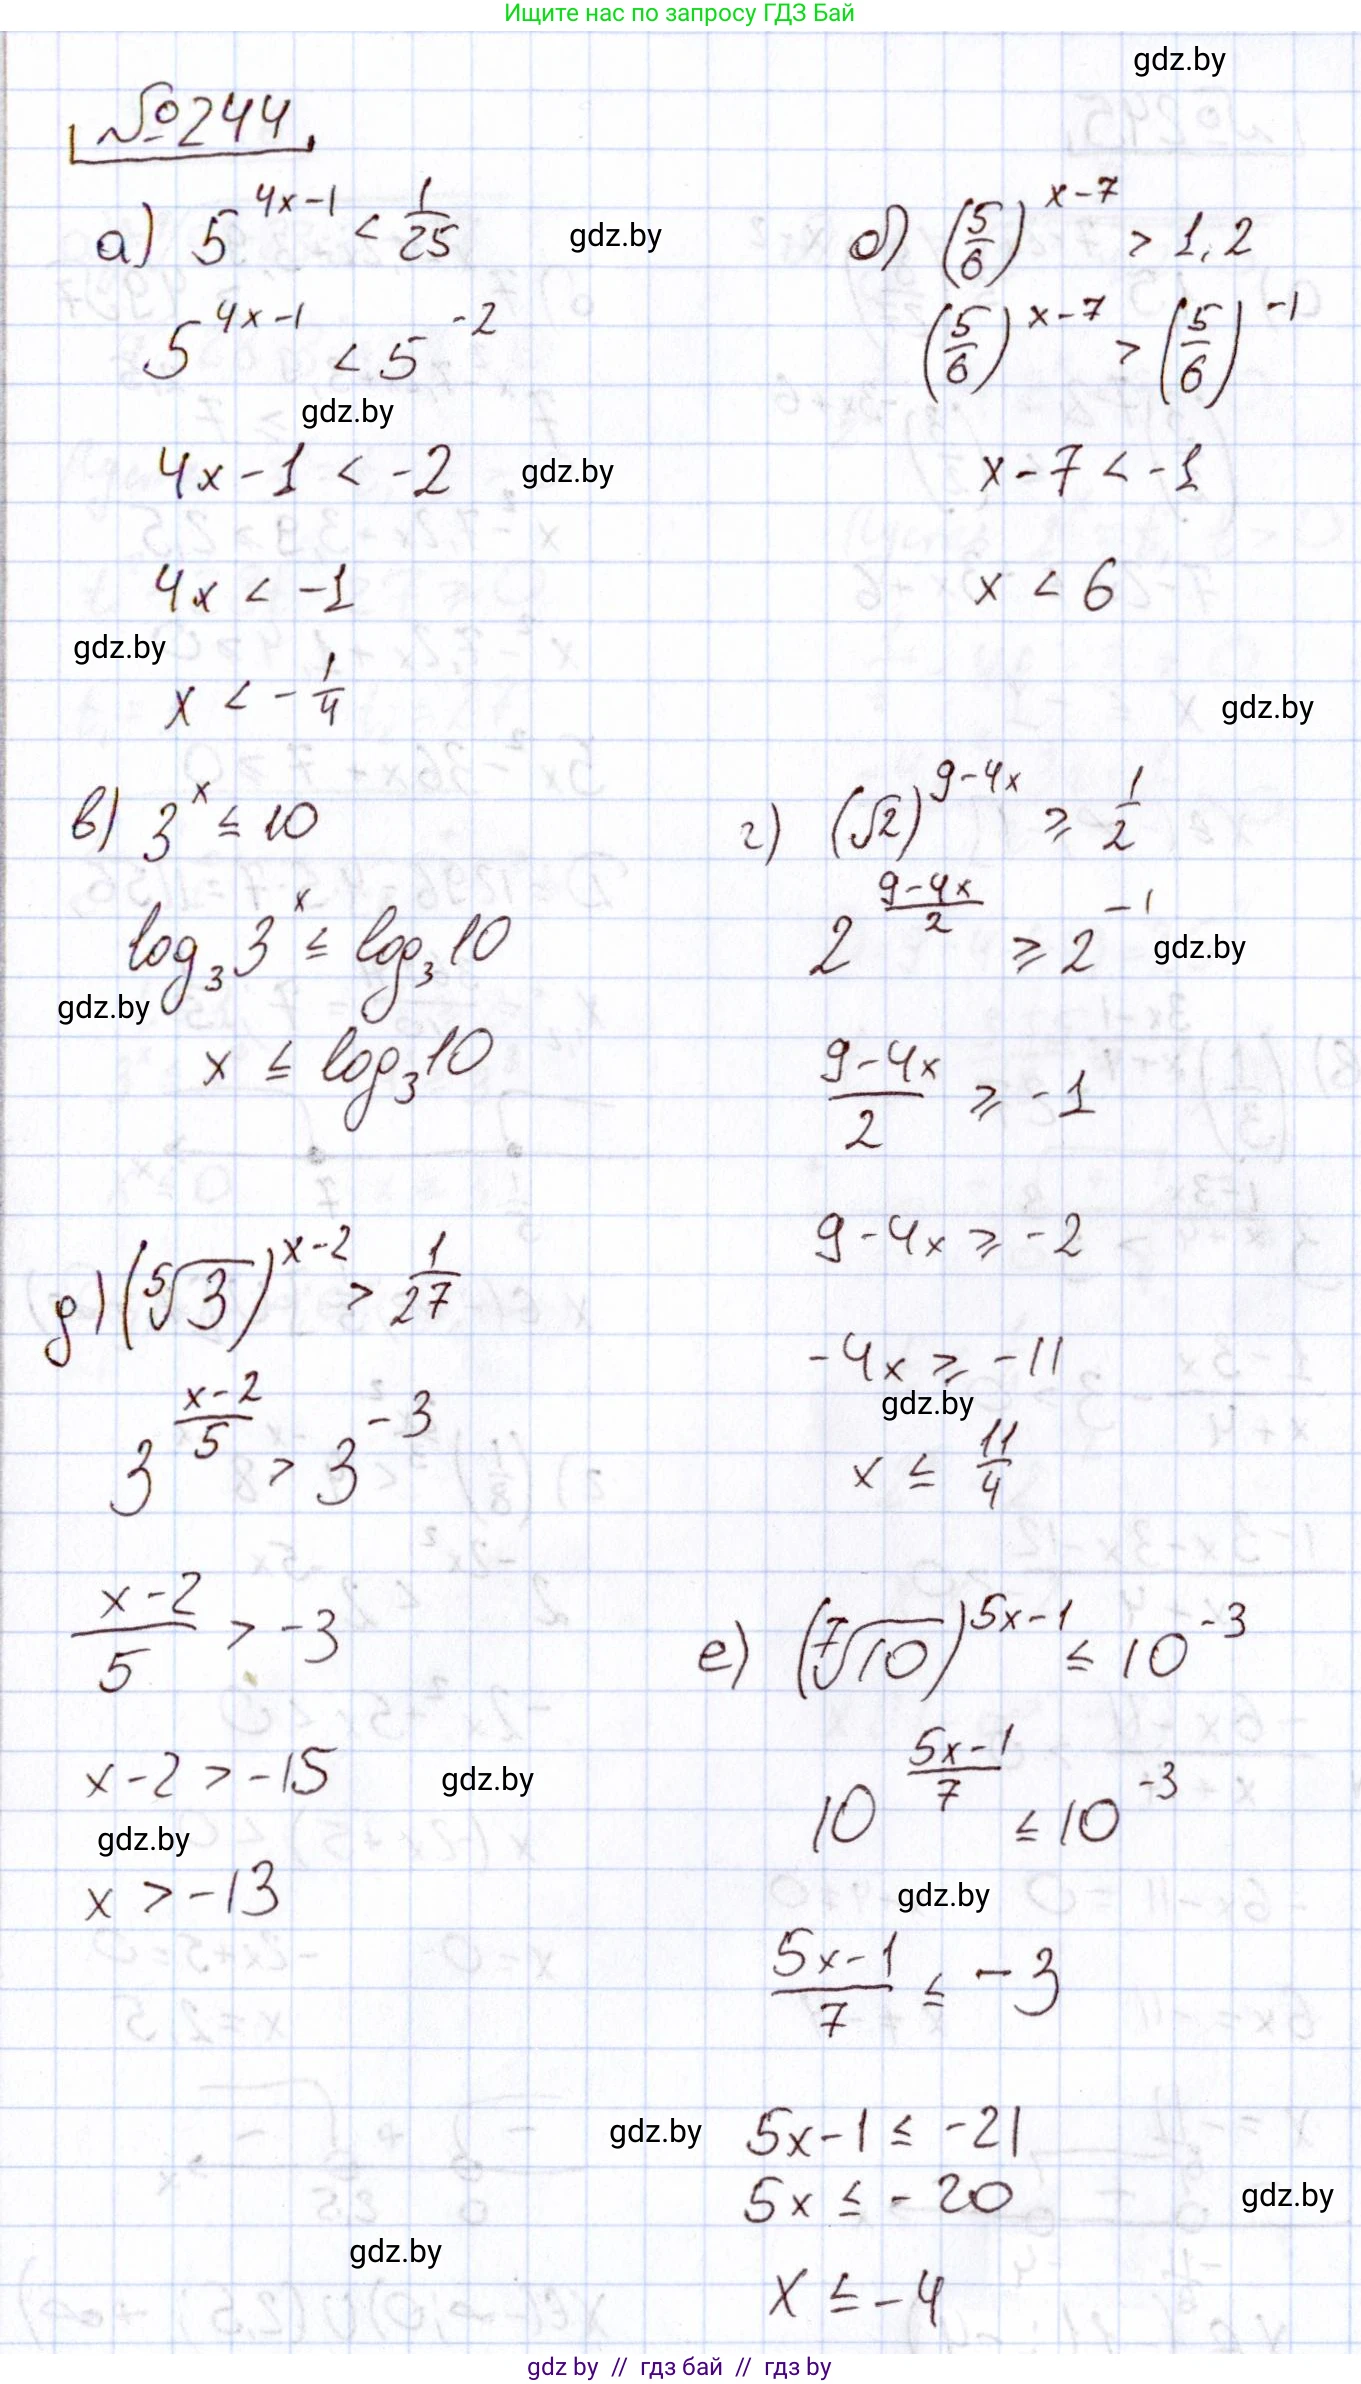 Ищите нас по запросу ГДЗ Бай
gdz.by
№244
а) 5^(4x-1) < 1/25
gdz.by
5^(4x-1) < 5^(-2)
gdz.by
4x-1 < -2
gdz.by
4x < -1
gdz.by
x < -1/4
б) (5/6)^(x-7) > 1,2
(5/6)^(x-7) > (5/6)^(-1)
x-7 < -1
x < 6
gdz.by
в) 3^x ≤ 10
log₃3^x ≤ log₃10
gdz.by
x ≤ log₃10
г) (√2)^(9-4x) ≥ 1/2
2^((9-4x)/2) ≥ 2^(-1)
gdz.by
(9-4x)/2 ≥ -1
9-4x ≥ -2
-4x ≥ -11
gdz.by
x ≤ 11/4
д) (⁵√3)^(x-2) > 1/27
3^((x-2)/5) > 3^(-3)
(x-2)/5 > -3
x-2 > -15
gdz.by
gdz.by
x > -13
е) (⁷√10)^(5x-1) ≤ 10^(-3)
10^((5x-1)/7) ≤ 10^(-3)
gdz.by
(5x-1)/7 ≤ -3
gdz.by
5x-1 ≤ -21
5x ≤ -20
gdz.by
gdz.by
x ≤ -4
gdz by // гдз бай // гдз by